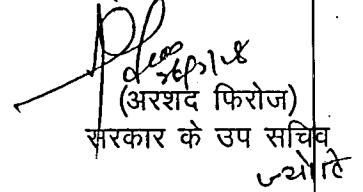 (अरशद फिरोज)
सरकार के उप सचिव
ज्योति